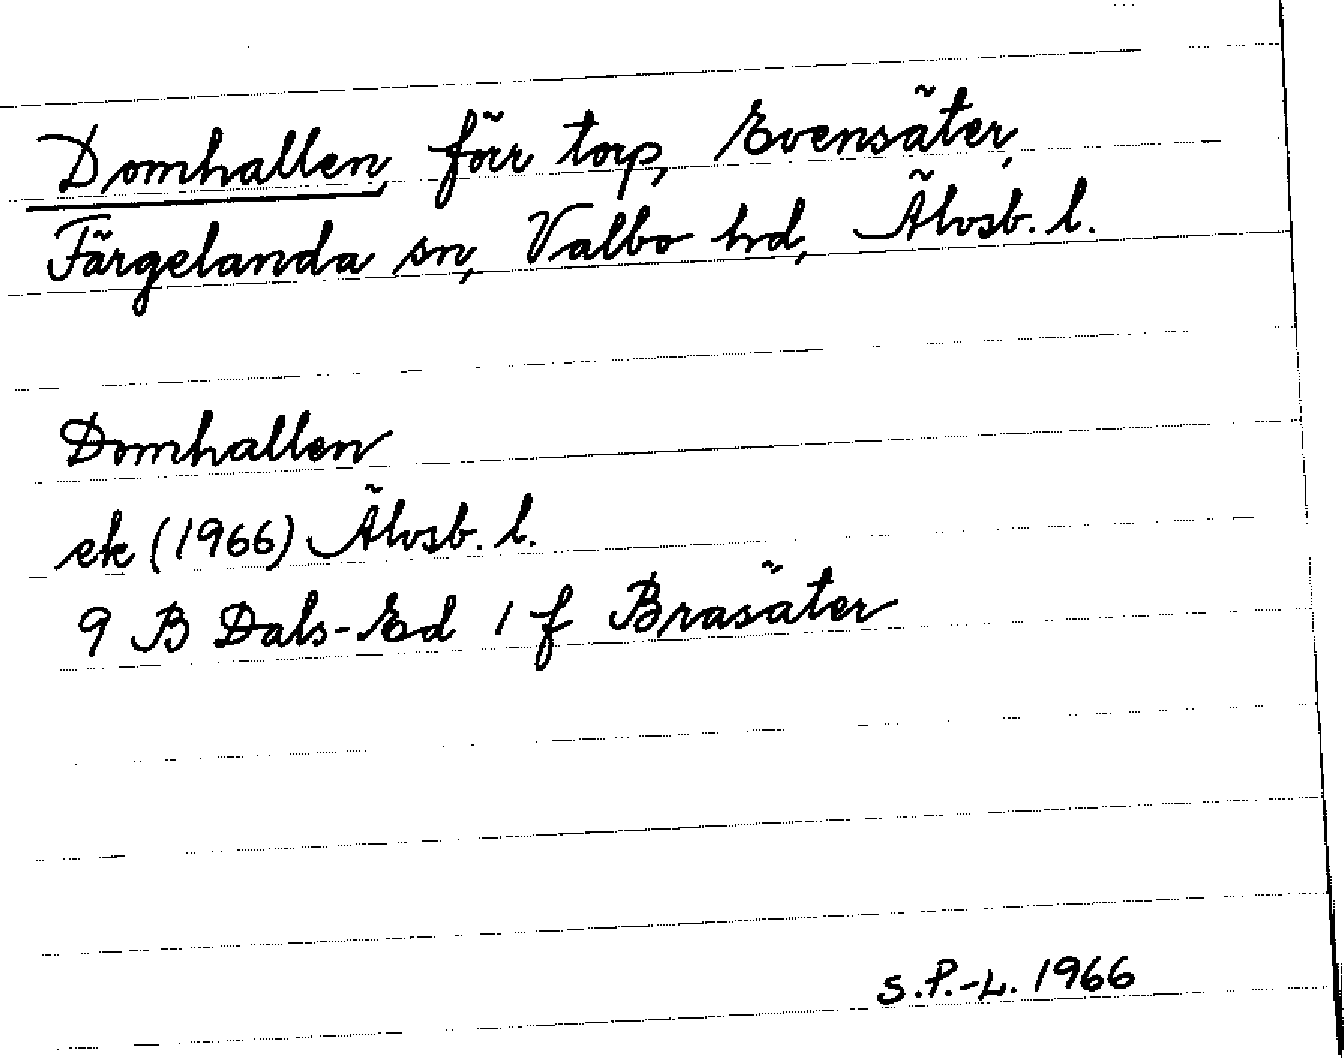 Domhallen, förr torp, Evensäter,
Färgelanda sn, Valbo hd, Älvsb. l.
Domhallen
ek (1966) Älvsb. l.
9 B Dals-Ed 1 f Brasäter
S.P.-L. 1966